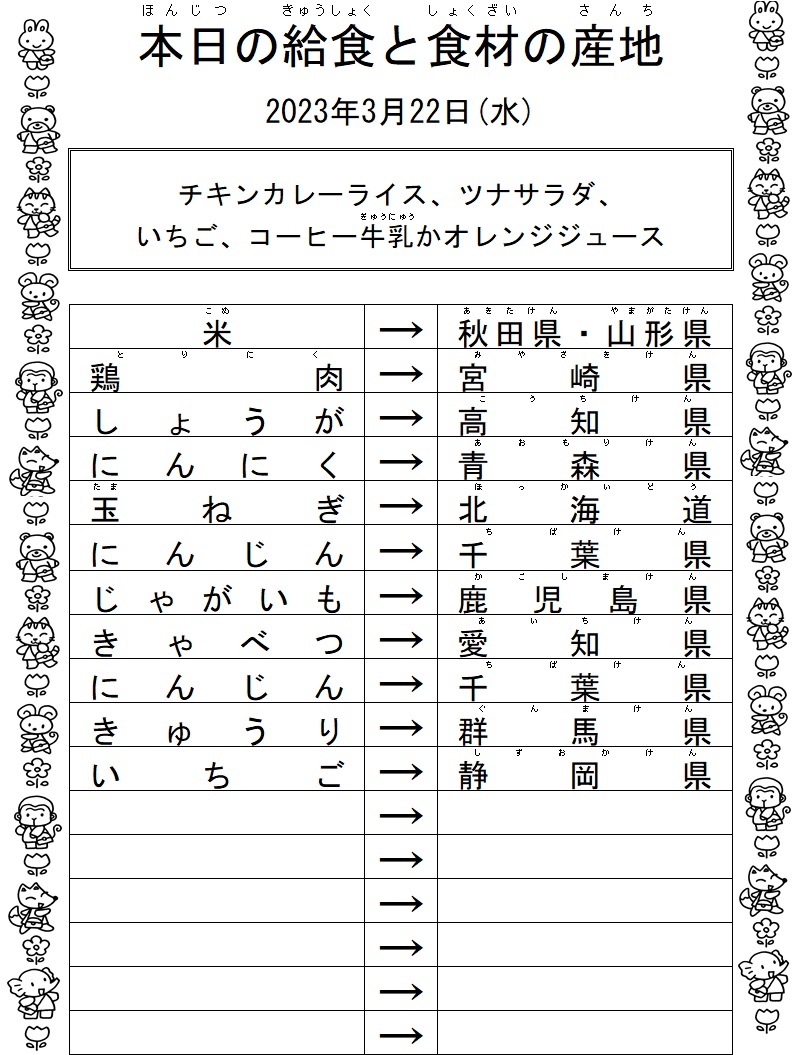 ほんじつ きゅうしょく しょくざい さんち
本日の給食と食材の産地
2023年3月22日(水)
チキンカレーライス、ツナサラダ、
ぎゅうにゅう
いちご、コーヒー牛乳かオレンジジュース
こめ あきたけん やまがたけん
米 → 秋田県・山形県
とりにく みやざきけん
鶏肉 → 宮崎県
こうちけん
しょうが → 高知県
あおもりけん
にんにく → 青森県
たま ほっかいどう
玉ねぎ → 北海道
ちばけん
にんじん → 千葉県
かごしまけん
じゃがいも → 鹿児島県
あいちけん
きゃべつ → 愛知県
ちばけん
にんじん → 千葉県
ぐんまけん
きゅうり → 群馬県
しずおかけん
いちご → 静岡県
→
→
→
→
→
→